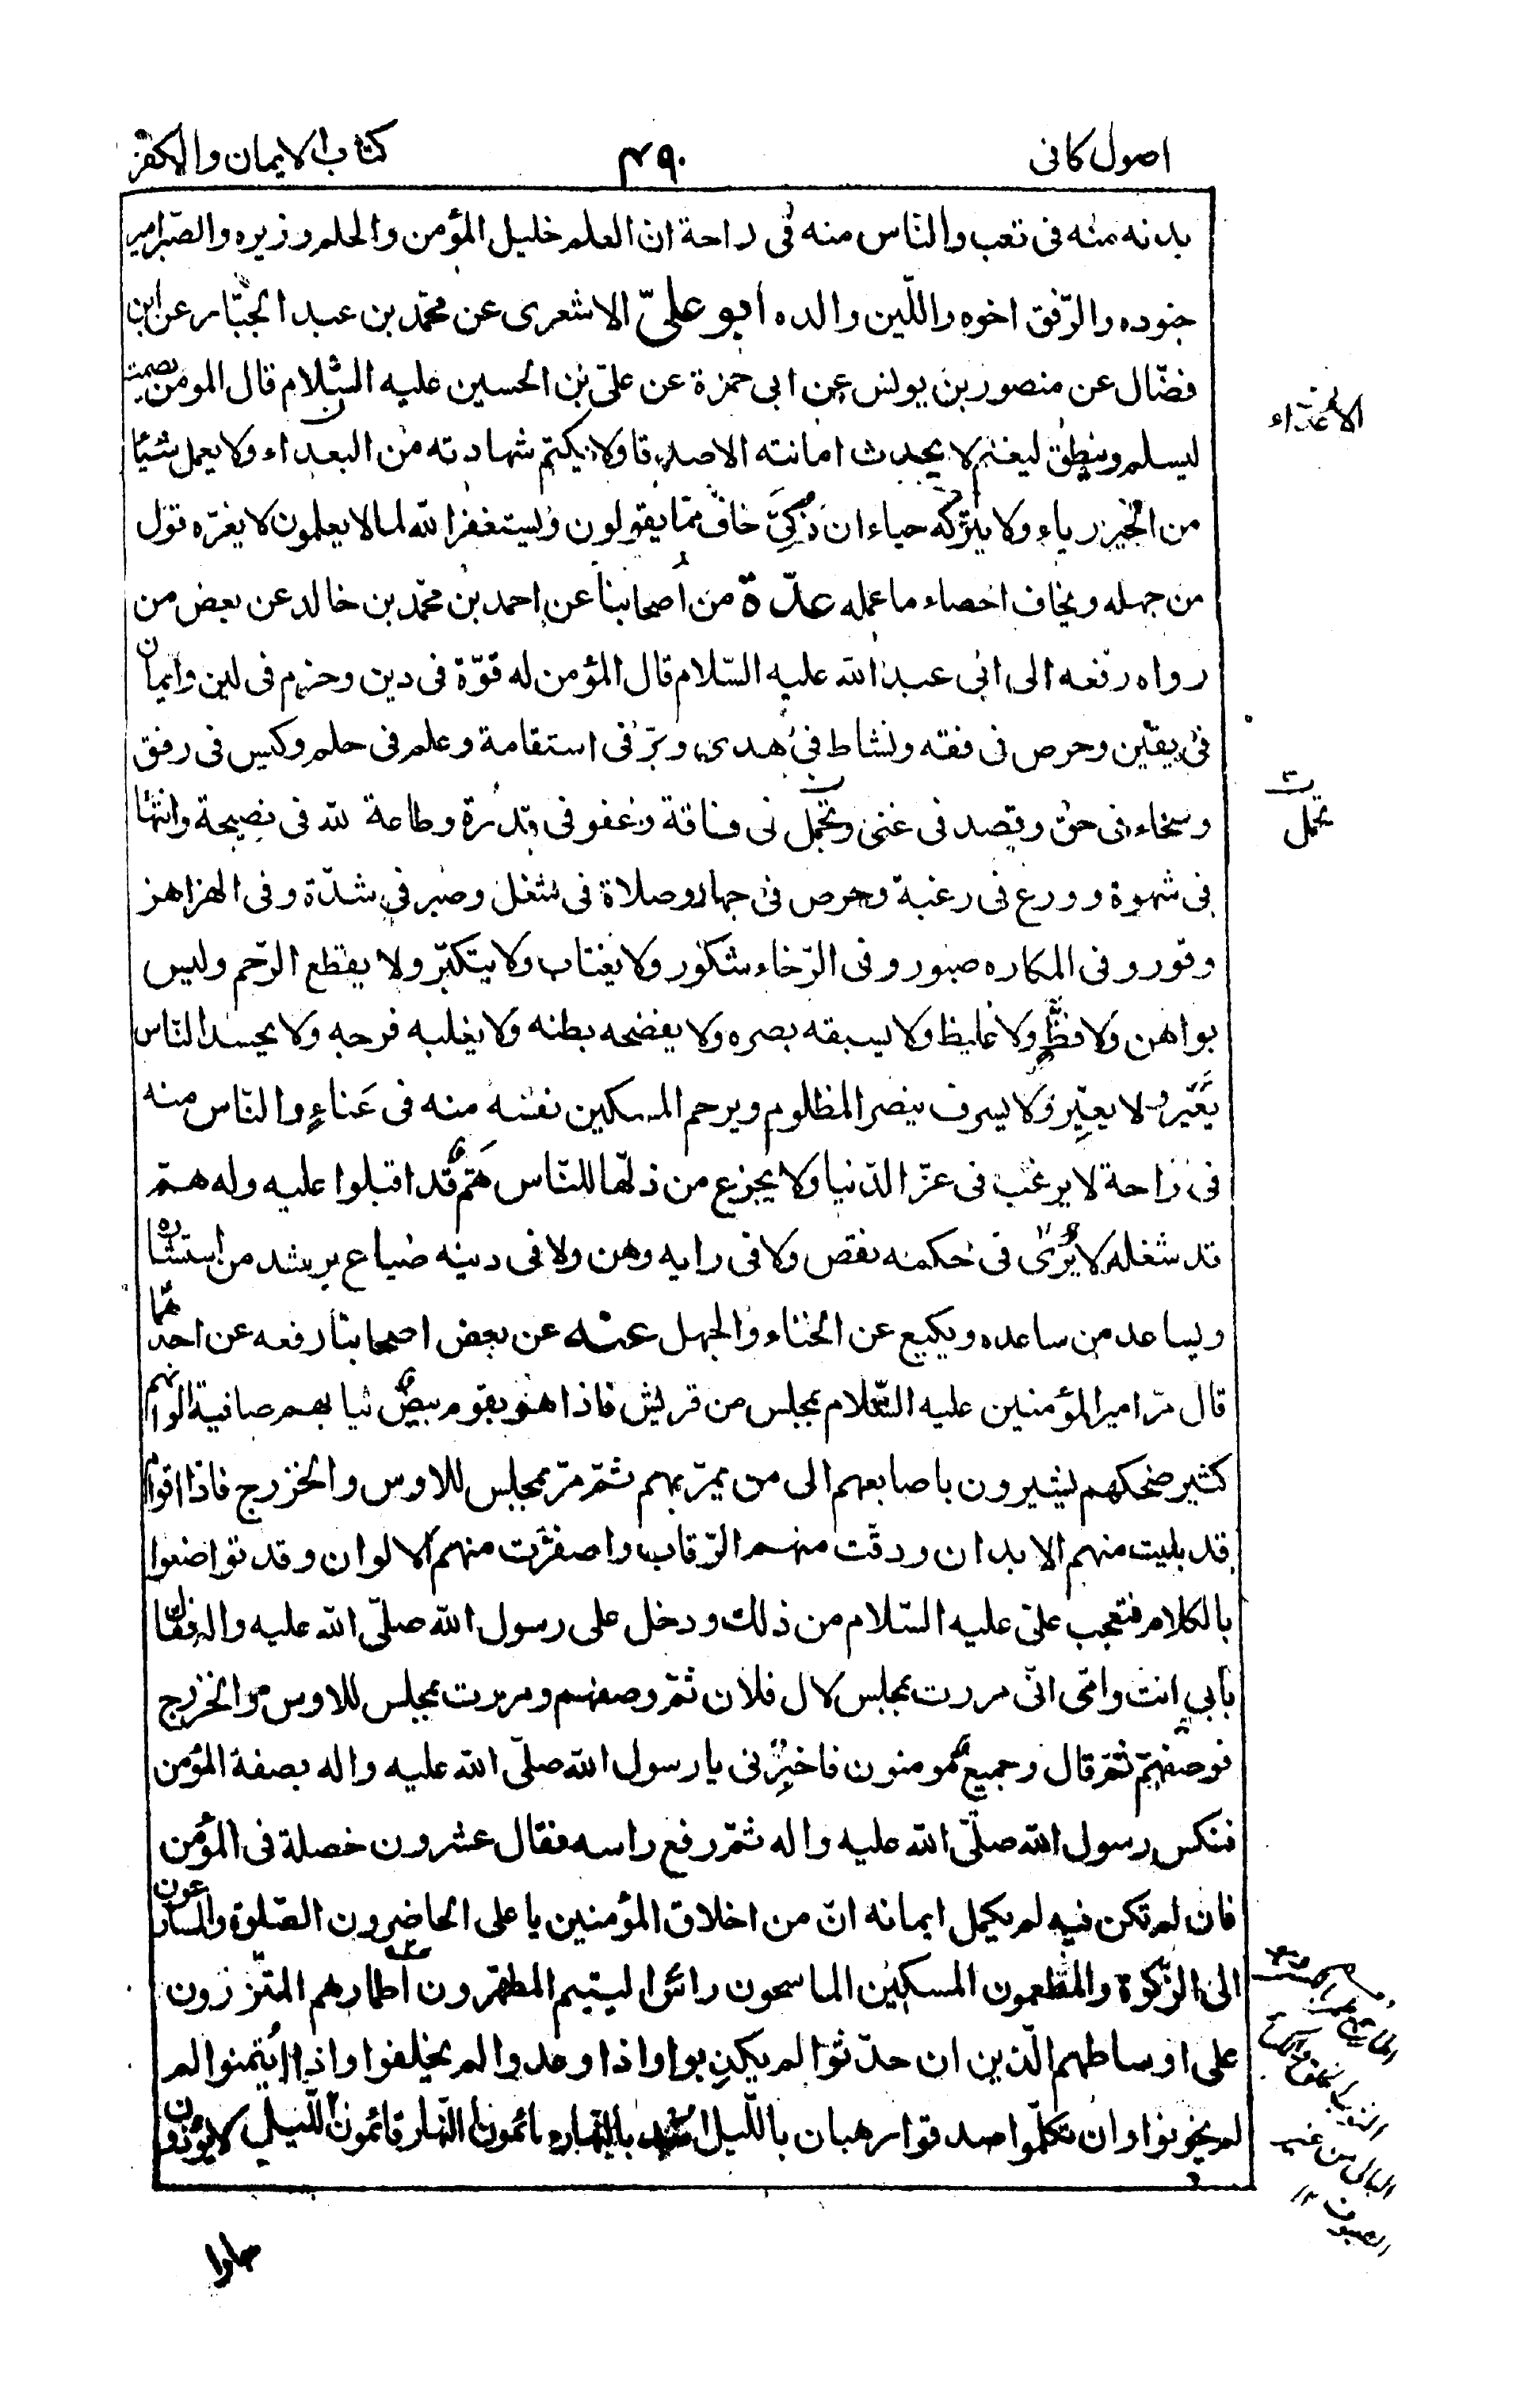 اصول كافى
٤٩٠
كتاب الايمان والكفر
بدنه منه فى تعب والنّاس منه فى راحة ان العلم خليل المؤمن والحلم وزيره والصّبر امير
جنوده والرّفق اخوه واللّين والده ابو علىّ الاشعرى عن محمّد بن عبد الجبّار عن ابن
فضّال عن منصور بن يونس عن ابى حمزة عن علىّ بن الحسين عليه السّلام قال المومن يصمت
ليسلم وينطق ليغنم لا يحدث امانته الاصدقا ولا يكتم شهادته من البعداء ولا يعمل شيئا
من الخير رياء ولا يتركه حياء ان زُكِّىَ خاف ممّا يقولون ويستغفر الله لما لا يعلمون لا يغرّه قول
من جهله ويخاف احصاء ما عمله عدّة من اصحابنا عن احمد بن محمّد بن خالد عن بعض من
رواه رفعه الى ابى عبد الله عليه السّلام قال المؤمن له قوّة فى دين وحزم فى لين وايمان
فى يقين وحرص فى فقه ونشاط فى هدى وبرّ فى استقامة وعلم فى حلم وكيس فى رفق
وسخاء فى حق وقصد فى غنى وتجمّل فى فاقة وعفو فى قدرة وطاعة لله فى نصيحة وانتها
فى شهوة وورع فى رغبة وحرص فى جهاد وصلاة فى شغل وصبر فى شدّة وفى الهزاهز
وقور وفى المكاره صبور وفى الرّخاء شكور ولا يغتاب ولا يتكبّر ولا يقطع الرّحم وليس
بواهن ولا فظّ ولا غليظ ولا يسبقه بصره ولا يفضحه بطنه ولا يغلبه فرجه ولا يحسد النّاس
يُعَيَّر ولا يعيِّر ولا يسرف ينصر المظلوم ويرحم المسكين نفسه منه فى عَناءٍ والنّاس منه
فى راحة لا يرغب فى عزّ الدّنيا ولا يجزع من ذلّها للنّاس هَمٌّ قد اقبلوا عليه وله همّ
قد شغله لا يُرىٰ فى حكمه نقص ولا فى رايه وهن ولا فى دينه ضياع يرشد من استشاره
ويساعد من ساعده ويكيع عن الخناء والجهل عنه عن بعض اصحابنا رفعه عن احدهما
قال مرّ امير المؤمنين عليه السّلام بمجلس من قريش فاذا هو بقوم بيض ثيابهم صافية الوانهم
كثير ضحكهم يشيرون باصابعهم الى من يمرّ بهم ثمّ مرّ بمجلس للاوس والخزرج فاذا اقوام
قد بليت منهم الابدان ودقّت منهم الرّقاب واصفرّت منهم الالوان وقد تواضعوا
بالكلام فتعجب علىّ عليه السّلام من ذلك ودخل على رسول الله صلّى الله عليه واله فقال
بابى انت وامّى انّى مررت بمجلس لال فلان ثمّ وصفهم ومررت بمجلس للاوس والخزرج
فوصفهم ثمّ قال وجميع مومنون فاخبرنى يا رسول الله صلّى الله عليه واله بصفة المؤمن
فنكس رسول الله صلّى الله عليه واله ثمّ رفع راسه فقال عشرون خصلة فى المؤمن
فان لم تكن فيه لم يكمل ايمانه انّ من اخلاق المؤمنين يا على الحاضرون الصّلوة والمسارعون
الى الزّكوة والمطعمون المسكين الماسحون رأس اليتيم المطهّرون اطمارهم المتّزرون
على اوساطهم الّذين ان حدّثوا لم يكذبوا واذا وعدوا لم يخلفوا واذا ائتمنوا لم
لم يخونوا وان تكلّموا صدقوا رهبان باللّيل اسد بالنّهار صائمون النّهار قائمون اللّيل لا يؤذون
جارا
الاعداء
يحمل
البالى من غير
الصوف ١٢